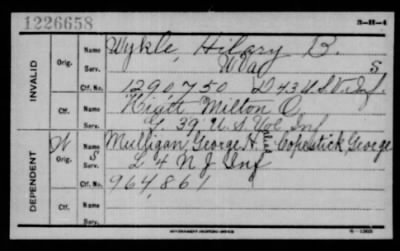 1226658
3-H-4
INVALID
Orig.
Name
Wykle, Hilary B.
Serv.
W Va
S
Ctf. No.
1290,750 D 43 U S V. Inf.
Ctf.
Name
Hyatt Milton O.
Serv.
G. 39 U. S. Vol Inf
Ctf. No.
DEPENDENT
W
Orig.
Name
Mulligan, George H. Copestick, George
S
Serv.
L 4 N J Inf
Ctf. No.
964,861
Ctf.
Name
Serv.
Ctf. No.
GOVERNMENT PRINTING OFFICE